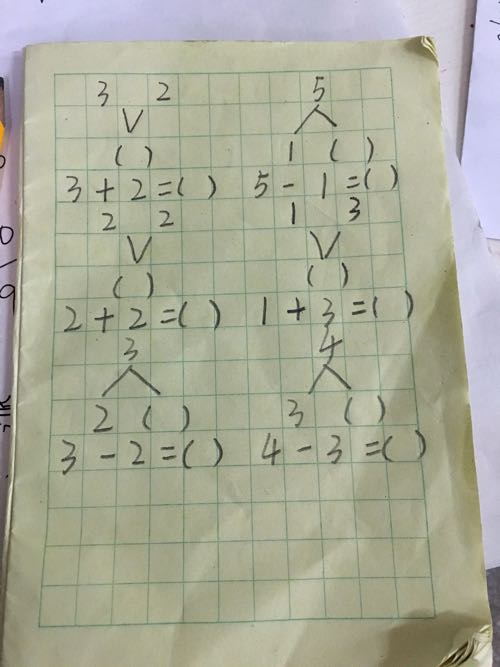 3 2 5
( ) 1 ( )
3 + 2 = ( ) 5 - 1 = ( )
2 2 1 3
( ) ( )
2 + 2 = ( ) 1 + 3 = ( )
3 4
2 ( ) 3 ( )
3 - 2 = ( ) 4 - 3 = ( )